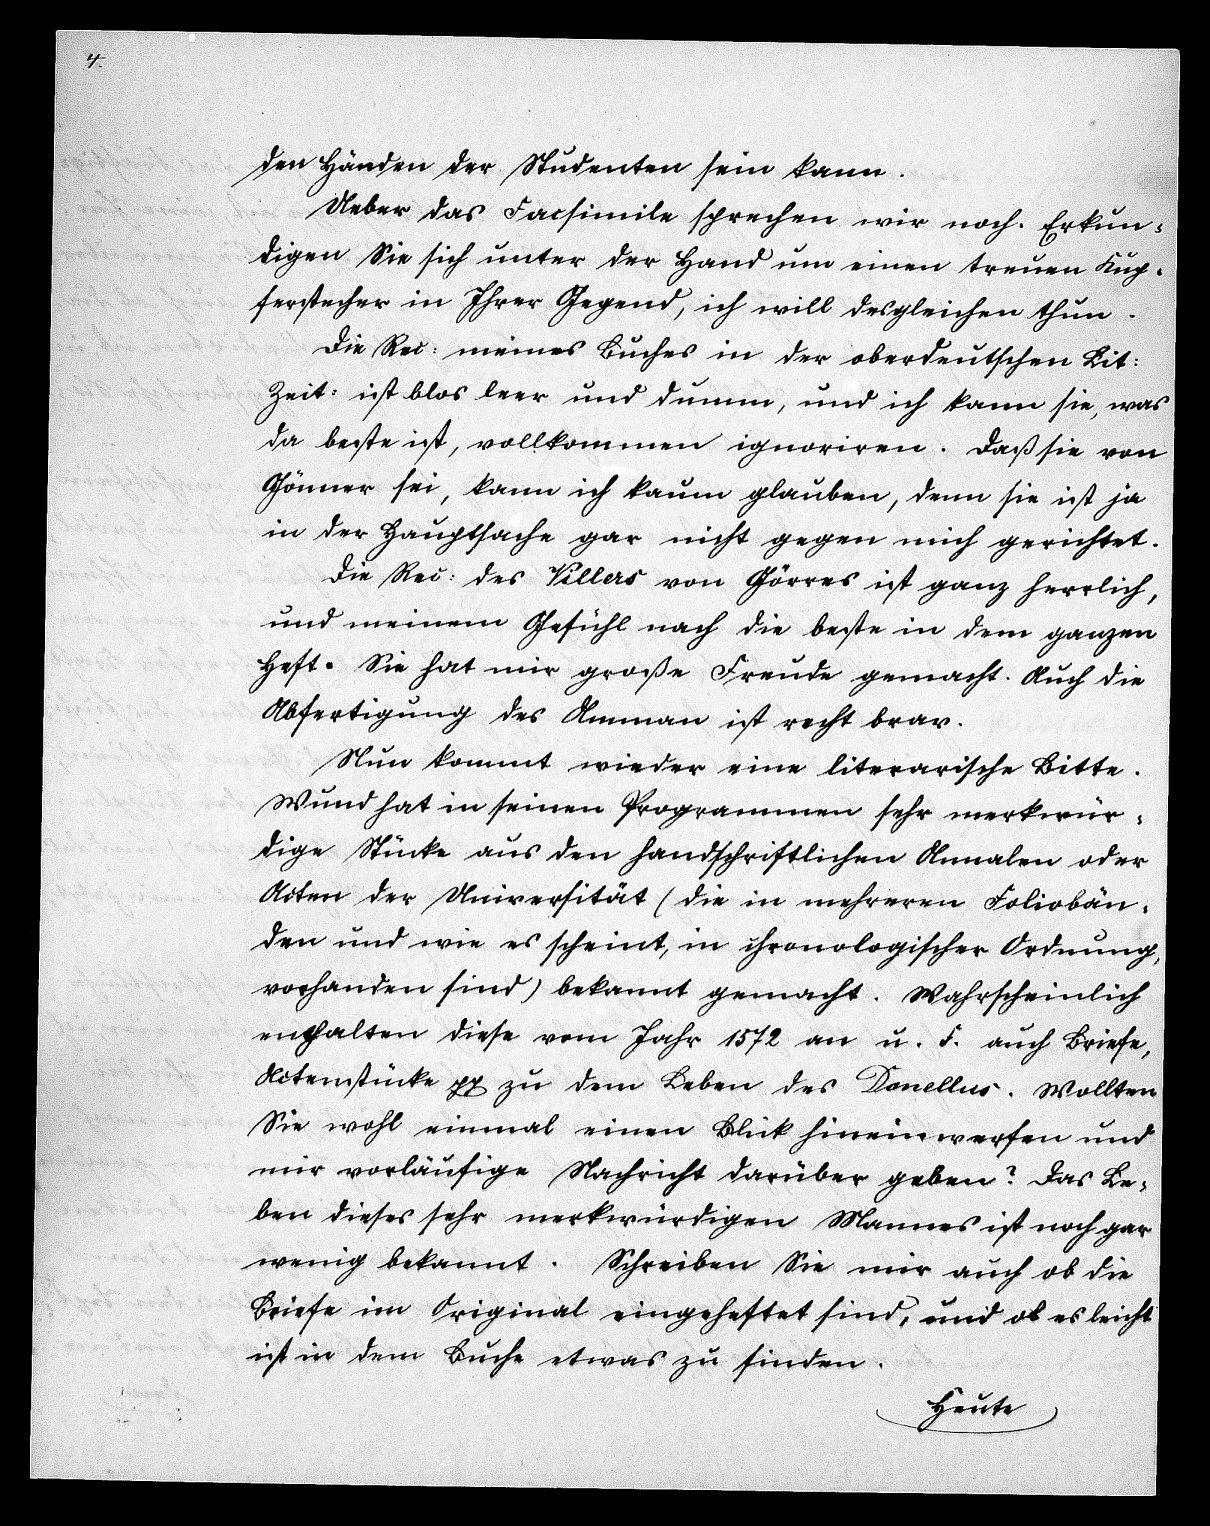 4.
den Händen der Studenten sein kann.
Ueber das Facsimile sprechen wir noch. Erkun-
digen Sie sich unter der Hand um einen treuen Kup-
ferstecher in Ihrer Gegend, ich will desgleichen thun.
Die Rec: meines Buches in der oberdeutschen Lit:
Zeit: ist blos leer und dumm, und ich kann sie, was
da beste ist, vollkommen ignoriren. Daß sie von
Gönner sei, kann ich kaum glauben, denn sie ist ja
in der Hauptsache gar nicht gegen mich gerichtet.
Die Rec: des Villers von Görres ist ganz herrlich,
und meinem Gefühl nach die beste in dem ganzen
Heft. Sie hat mir große Freude gemacht. Auch die
Abfertigung des Amman ist recht brav.
Nun kommt wieder eine literarische Bitte.
Wund hat in seinen Programmen sehr merkwür-
dige Stücke aus den handschriftlichen Annalen oder
Acten der Universität (die in mehreren Foliobän-
den und wie es scheint, in chronologischer Ordnung,
vorhanden sind) bekannt gemacht. Wahrscheinlich
enthalten diese vom Jahr 1572 an u. f. auch Briefe,
Actenstücke pp zu dem Leben des Donellus. Wollten
Sie wohl einmal einen Blick hineinwerfen und
mir vorläufige Nachricht darüber geben? Das Le-
ben dieses sehr merkwürdigen Mannes ist noch gar
wenig bekannt. Schreiben Sie mir auch ob die
Briefe im Original eingeheftet sind, und ob es leicht
ist in dem Buche etwas zu finden.
Heute